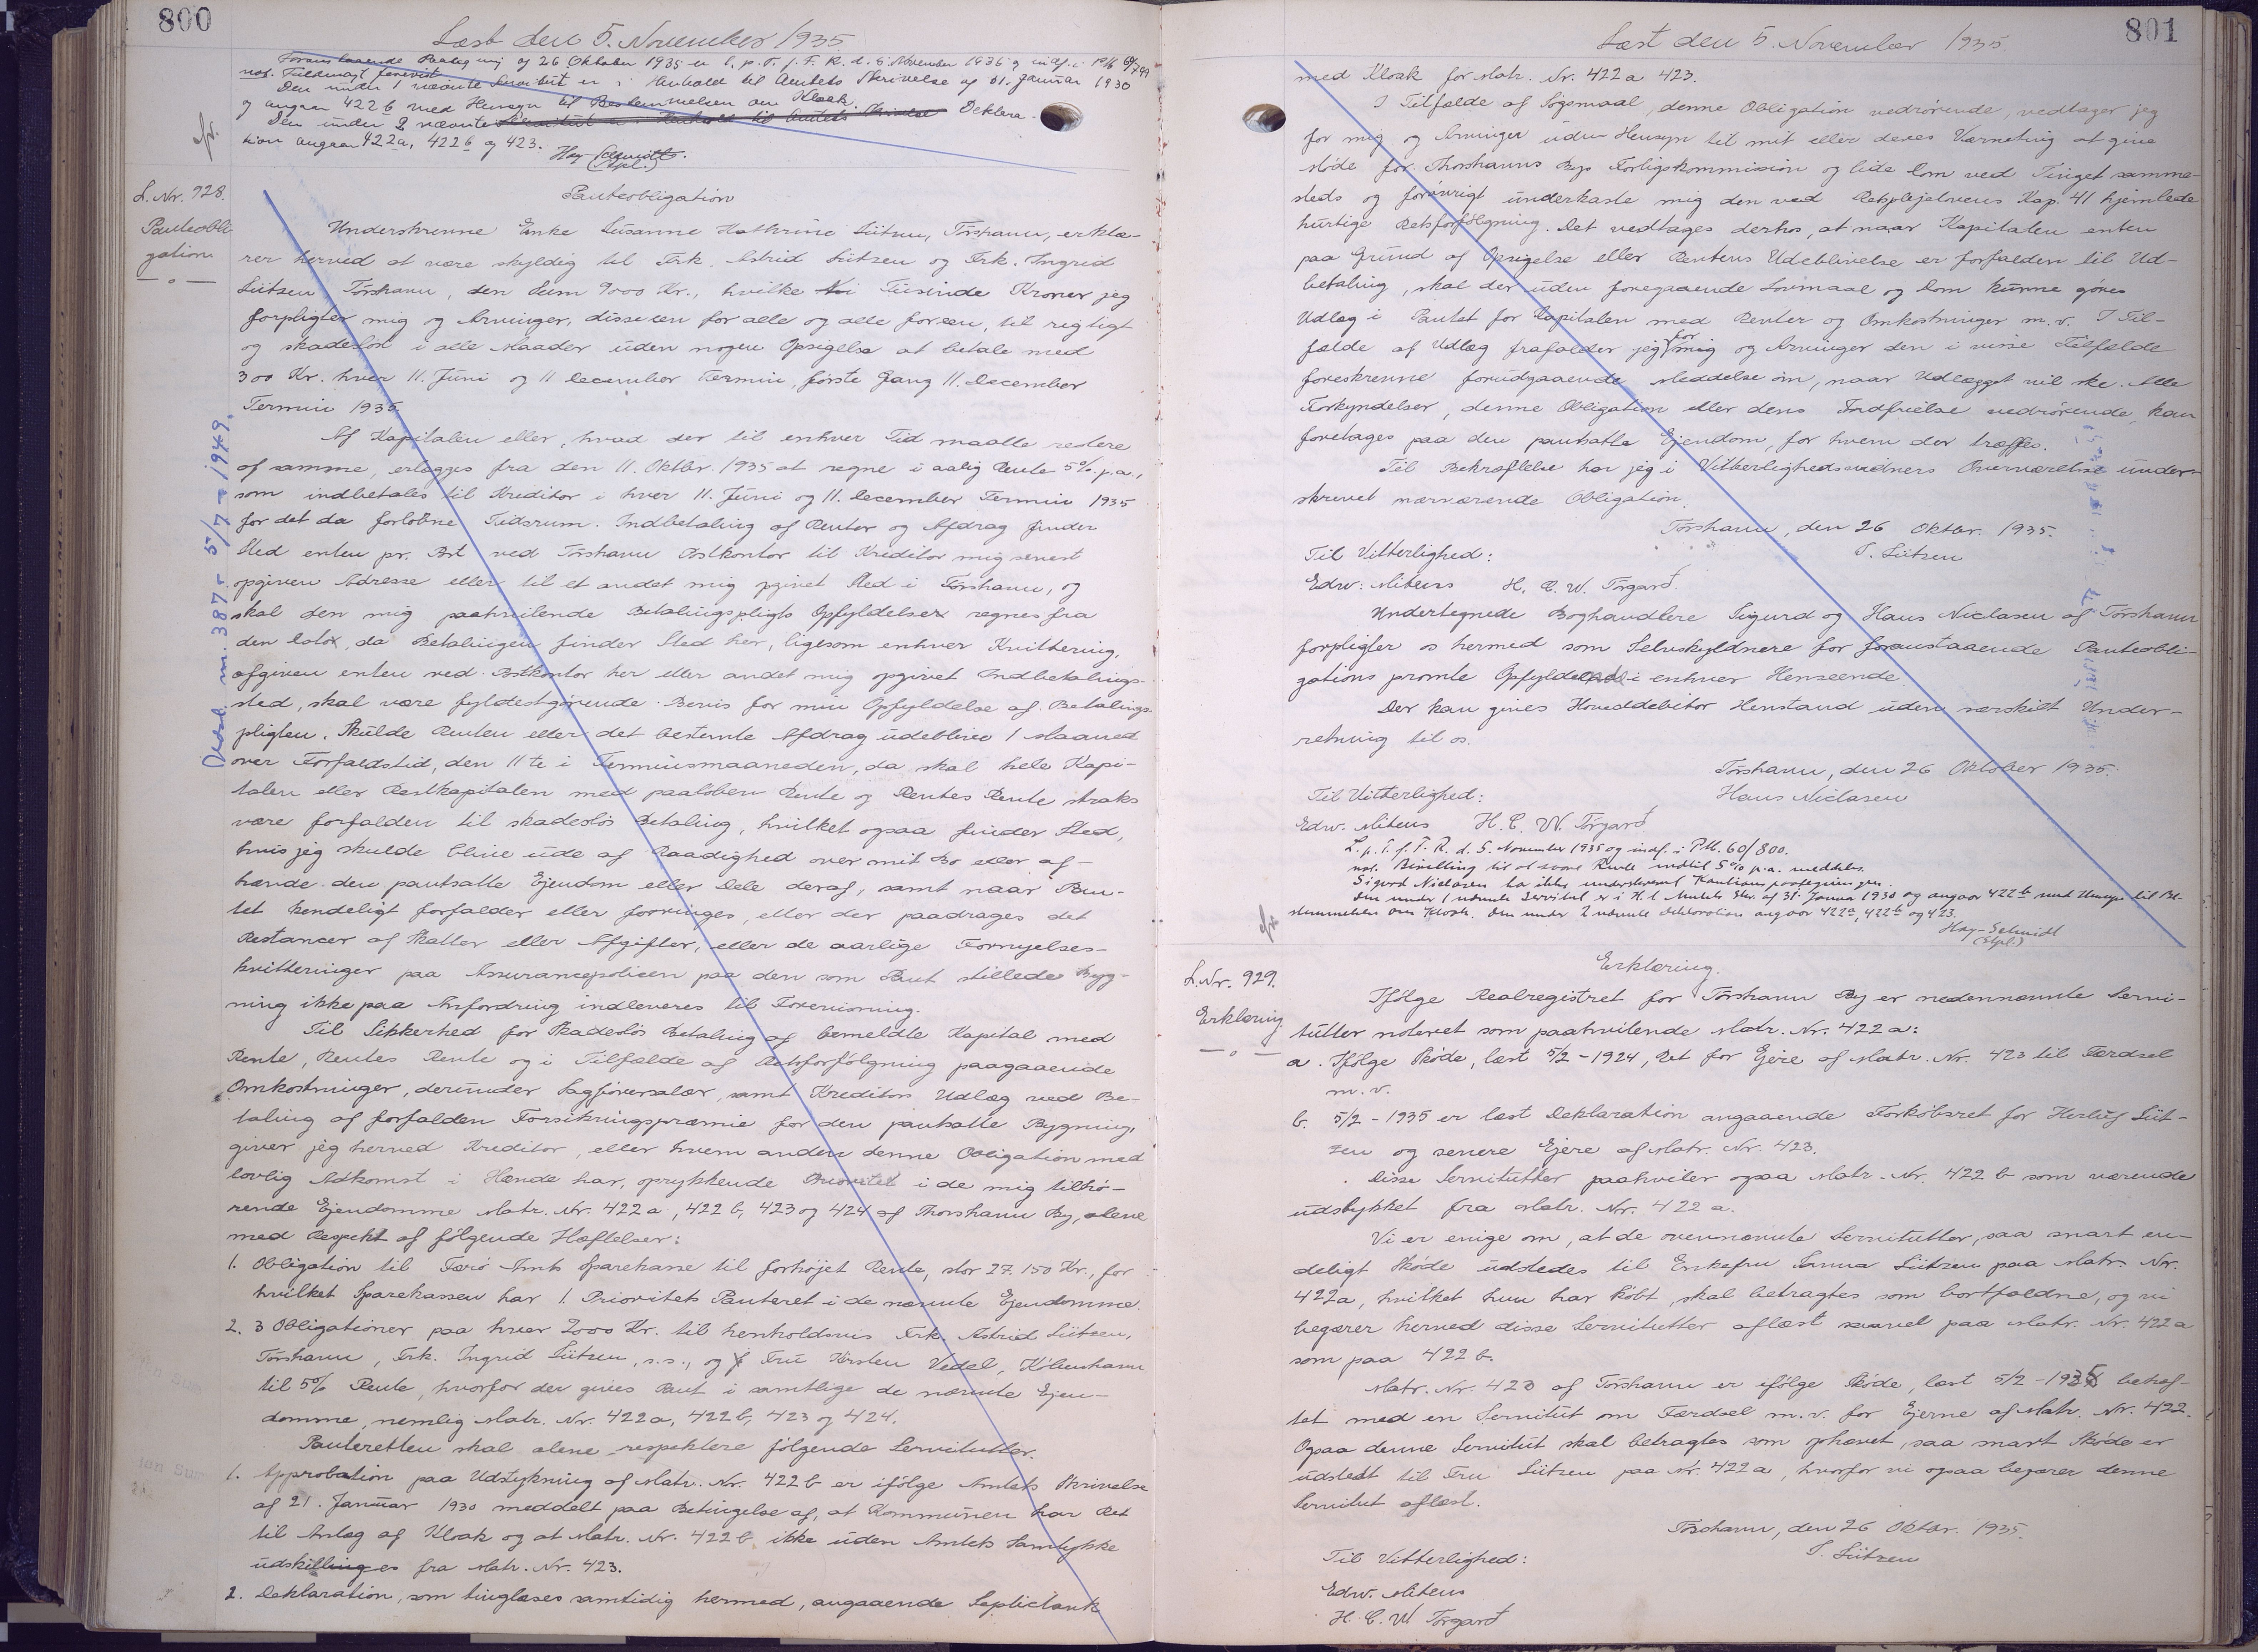 800
Læst den 5. November 1935
Foranstaaende Paategning af 26 Oktober 1935 er l. p. T. f. F. R. d. 5. November 1935 og indf. i PM 60/799
not. Fuldmagt forevist
Den under 1 nævnte Servitut er i Henhold til Amtets Skrivelse af 31. Januar 1930
og angaar 422 b med Hensyn til Bestemmelsen om Kloak.
Den under 2 nævnte Servitut er i Henhold til Amtets Skrivelse Deklara-
tion angaar 422a, 422b og 423.
Hay-Schmidt.
(Stpl.)
L. Nr. 928.
Panteobli
gation
Panteobligation
Underskrevne Enke Susanne Kathrine Lützen, Tórshavn, erklæ-
rer herved at være skyldig til Frk. Astrid Lützen og Frk. Ingrid
Lützen, Tórshavn, den Sum 9000 Kr., hvilke Ni Tusinde Kroner jeg
forpligter mig og Arvinger, disse een for alle og alle for een, til rigtigt
og skadesløs i alle Maader uden nogen Opsigelse at betale med
300 Kr. hver 11. Juni og 11 December Termin, første Gang 11. December
Termin 1935.
Af Kapitalen eller, hvad der til enhver Tid maatte restere
af samme, erlægges fra den 11. Oktbr. 1935 at regne i aarlig Rente 5% p.a.,
som indbetales til Kreditor i hver 11. Juni og 11. December Termin 1935
for det da forløbne Tidsrum. Indbetaling af Renter og Afdrag finder
Sted enten pr. Post ved Tórshavn Postkontor til Kreditor mig senest
opgiven Adresse eller til et andet mig opgivet Sted i Tórshavn, og
skal den mig paahvilende Betalingspligts Opfyldelse regnes fra
den Dato, da Betalingen finder Sted her, ligesom enhver Kvittering,
afgiven enten ved Postkontor her eller andet mig opgivet Indbetalings-
sted, skal være fyldestgørende Bevis for min Opfyldelse af Betalings-
pligten. Skulde Renten eller det bestemte Afdrag udeblive 1 Maaned
over Forfaldstid, den 11te i Terminsmaaneden, da skal hele Kapi-
talen eller Restkapitalen med paaløben Rente og Rentes Rente straks
være forfalden til skadesløs Betaling, hvilket ogsaa finder Sted,
hvis jeg skulde blive ude af Raadighed over mit Bo eller af-
hænde den pantsatte Ejendom eller Dele deraf, samt naar Pan-
tet kendeligt forfalder eller forringes, eller der paadrages det
Restancer af Skatter eller Afgifter, eller de aarlige Fornyelses-
kvitteringer paa Assurancepolicen paa den som Pant stillede Byg-
ning ikke paa Anfordring indleveres til Forevisning.
Til Sikkerhed for skadesløs Betaling af bemeldte Kapital med
Rente, Rentes Rente og i Tilfælde af Retsforfølgning paagaaende
Omkostninger, derunder Sagførersalær, samt Kreditors Udlæg ved Be-
taling af forfalden Forsikringspræmie for den pantsatte Bygning,
giver jeg herved Kreditor, eller hvem anden denne Obligation med
lovlig Adkomst i Hænde har, oprykkende Prioritet i de mig tilhø-
rende Ejendomme Matr. Nr. 422 a, 422 b, 423 og 424 af Thorshavn By, alene
med Respekt af følgende Hæftelser:
1. Obligation til Færø Amts Sparekasse til forhøjet Rente, stor 27.150 Kr., for
hvilket Sparekassen har 1. Prioritets Panteret i de nævnte Ejendomme.
2. 3 Obligationer paa hver 2000 Kr. til henholdsvis Frk. Astrid Lützen,
Tórshavn, Frk. Ingrid Lützen, s.s., og Fru Kirsten Vedel, København
til 5% Rente, hvorfor der gives Pant i samtlige de nævnte Ejen-
domme, nemlig Matr. Nr. 422 a, 422 b, 423 og 424.
Panteretten skal alene respektere følgende Servitutter.
1. Approbation paa Udstykning af Matr. Nr. 422 b er ifølge Amtets Skrivelse
af 21. Januar 1930 meddelt paa Betingelse af, at Kommunen har Ret
til Anlæg af Kloak og at Matr. Nr. 422 b ikke uden Amtets Samtykke
udskilling es fra Matr. Nr. 423.
2. Deklaration, som tinglæses samtidig hermed, angaaende Septictank
nr. 387 - 5/7 - 1949.
801
Læst den 5. November 1935
med Kloak for Matr. Nr. 422 a 423.
I Tilfælde af Søgsmaal, denne Obligation vedrørende, vedtager jeg
for mig og Arvinger uden Hensyn til mit eller deres Værneting at give
Møde for Thorshavns Bys Forligskommission og lide Dom ved Tinget samme-
steds og forøvrigt underkaste mig den ved Retsplejelovens Kap. 41 hjemlede
hurtige Retsforfølgning. Det vedtages derhos, at naar Kapitalen enten
paa Grund af Opsigelse eller Rentens Udeblivelse er forfalden til Ud-
betaling, skal der uden foregaaende Lovmaal og Dom kunne gøres
Udlæg i Pantet for Kapitalen med Renter og Omkostninger m.v. I Til-
fælde af Udlæg frafalder jeg for mig og Arvinger den i visse Tilfælde
foreskrevne forudgaaende Meddelse om, naar Udlægget vil ske. Alle
Forkyndelser, denne Obligation eller dens Indfrielse vedrørende, kan
foretages paa den pantsatte Ejendom, for hvem der træffes.
Til Bekræftelse har jeg i Vitterlighedsvidners Overværelse under-
skrevet nærværende Obligation.
Tórshavn, den 26 Oktbr. 1935.
S. Lützen
Til Vitterlighed:
Edw: Mitens H. C. W. Tórgarð
Undertegnede Boghandlere Sigurd og Hans Niclasen af Tórshavn
forpligter os hermed som Selvskyldnere for foranstaaende Panteobli-
gations promte Opfyldelse i enhver Henseende.
Der kan gives Hoveddebitor Henstand uden særskilt Under-
retning til os.
Tórshavn, den 26 Oktober 1935.
Til Vitterlighed: Hans Niclasen
Edw. Mitens H. C. W. Tórgarð
L. p. T. f. F. R. d. 5. November 1935 og indf. i PM. 60/800.
not. Bevilling til at svare Rente indtil 5% p.a. meddeles.
Sigurd Niclasen har ikke underskrevet Kautionspaategningen.
Den under 1 nævnte Servitut er i H. t. Amtets Skr. af 31. Januar 1930 og angaar 422 b med Hensyn til Be-
stemmelsen om Kloak. Den under 2 nævnte Deklaration angaar 422a, 422b og 423.
Hay-Schmidt
(Stpl.)
L. Nr. 929.
Erklæring
Erklæring.
Ifølge Realregistret for Tórshavn By er nedennævnte Servi-
tutter noteret som paahvilende Matr. Nr. 422 a:
a. Ifølge Skøde, læst 5/2 - 1924, Ret for Ejere af Matr. Nr. 423 til Færdsel
m.v.
b. 5/2 - 1935 er læst Deklaration angaaende Forkøbsret for Herluf Lüt-
zen og senere Ejere af Matr. Nr. 423.
Disse Servitutter paahviler ogsaa Matr. Nr. 422 b som værende
udstykket fra Matr. Nr. 422 a.
Vi er enige om, at de ovennævnte Servitutter, saa snart en-
deligt Skøde udstedes til Enkefru Sanna Lützen paa Matr. Nr.
422a, hvilket hun har købt, skal betragtes som bortfaldne, og vi
begærer herved disse Servitutter aflæst saavel paa Matr. Nr. 422 a
som paa 422 b.
Matr. Nr. 423 af Tórshavn er ifølge Skøde, læst 5/2 - 1935 behæf-
tet med en Servitut om Færdsel m.v. for Ejerne af Matr. Nr. 422.
Ogsaa denne Servitut skal betragtes som ophævet, saa snart Skøde er
udstedt til Fru Lützen paa Nr. 422 a, hvorfor vi ogsaa begærer denne
Servitut aflæst.
Tórshavn, den 26 Oktbr. 1935.
Til Vitterlighed: S. Lützen
Edw. Mitens
H. C. W. Tórgarð